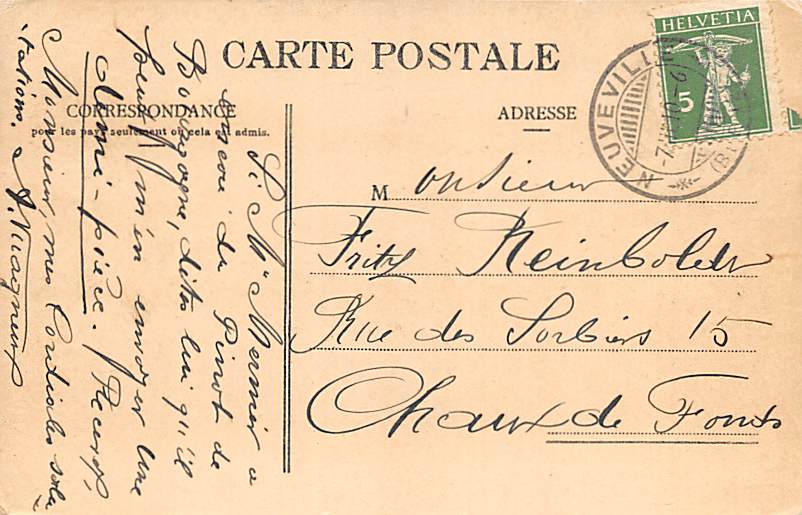 CARTE POSTALE
CORRESPONDANCE
pour les pays seulement où cela est admis.
ADRESSE
HELVETIA
5
NEUVEVILLE
Monsieur
Fritz Reinboldt
Rue des Sorbiers 15
Chaux de Fonds
Si Mr Mermier a
encore du Pinot de
Bourgogne, dites lui qu'il
peut m'en envoyer une
demi-pièce. Recevez,
Monsieur, mes Cordiales salu
tations.